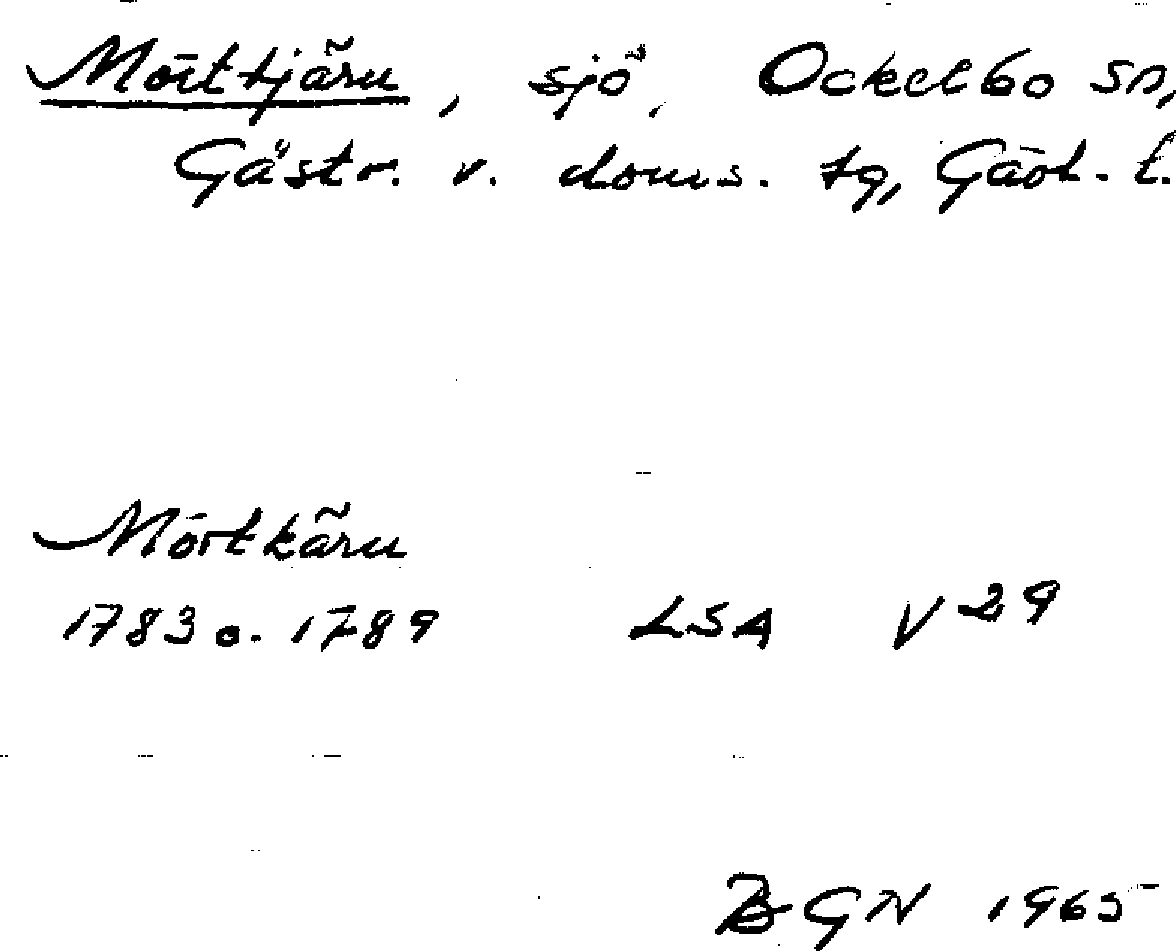 Mörttjärn, sjö, Ockelbo sn,
Gästr. v. doms. tg, Gävl. l.
Mörtkärn
1783 o. 1789 LSA V 29
BGN 1965